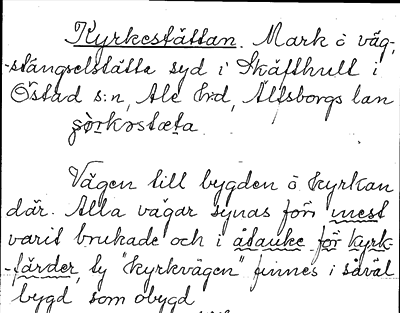 Kyrkestättan. Mark o väg-
-stängselstätta syd i Skäfthult i
Östad s:n, Ale Hd, Älfsborgs län
Vägen till bygden o kyrkan
där. Alla vägar synas för mest
varit brukade och i åtanke för kyrk-
-färder, ty "kyrkvägen" finnes i såväl
bygd som obygd